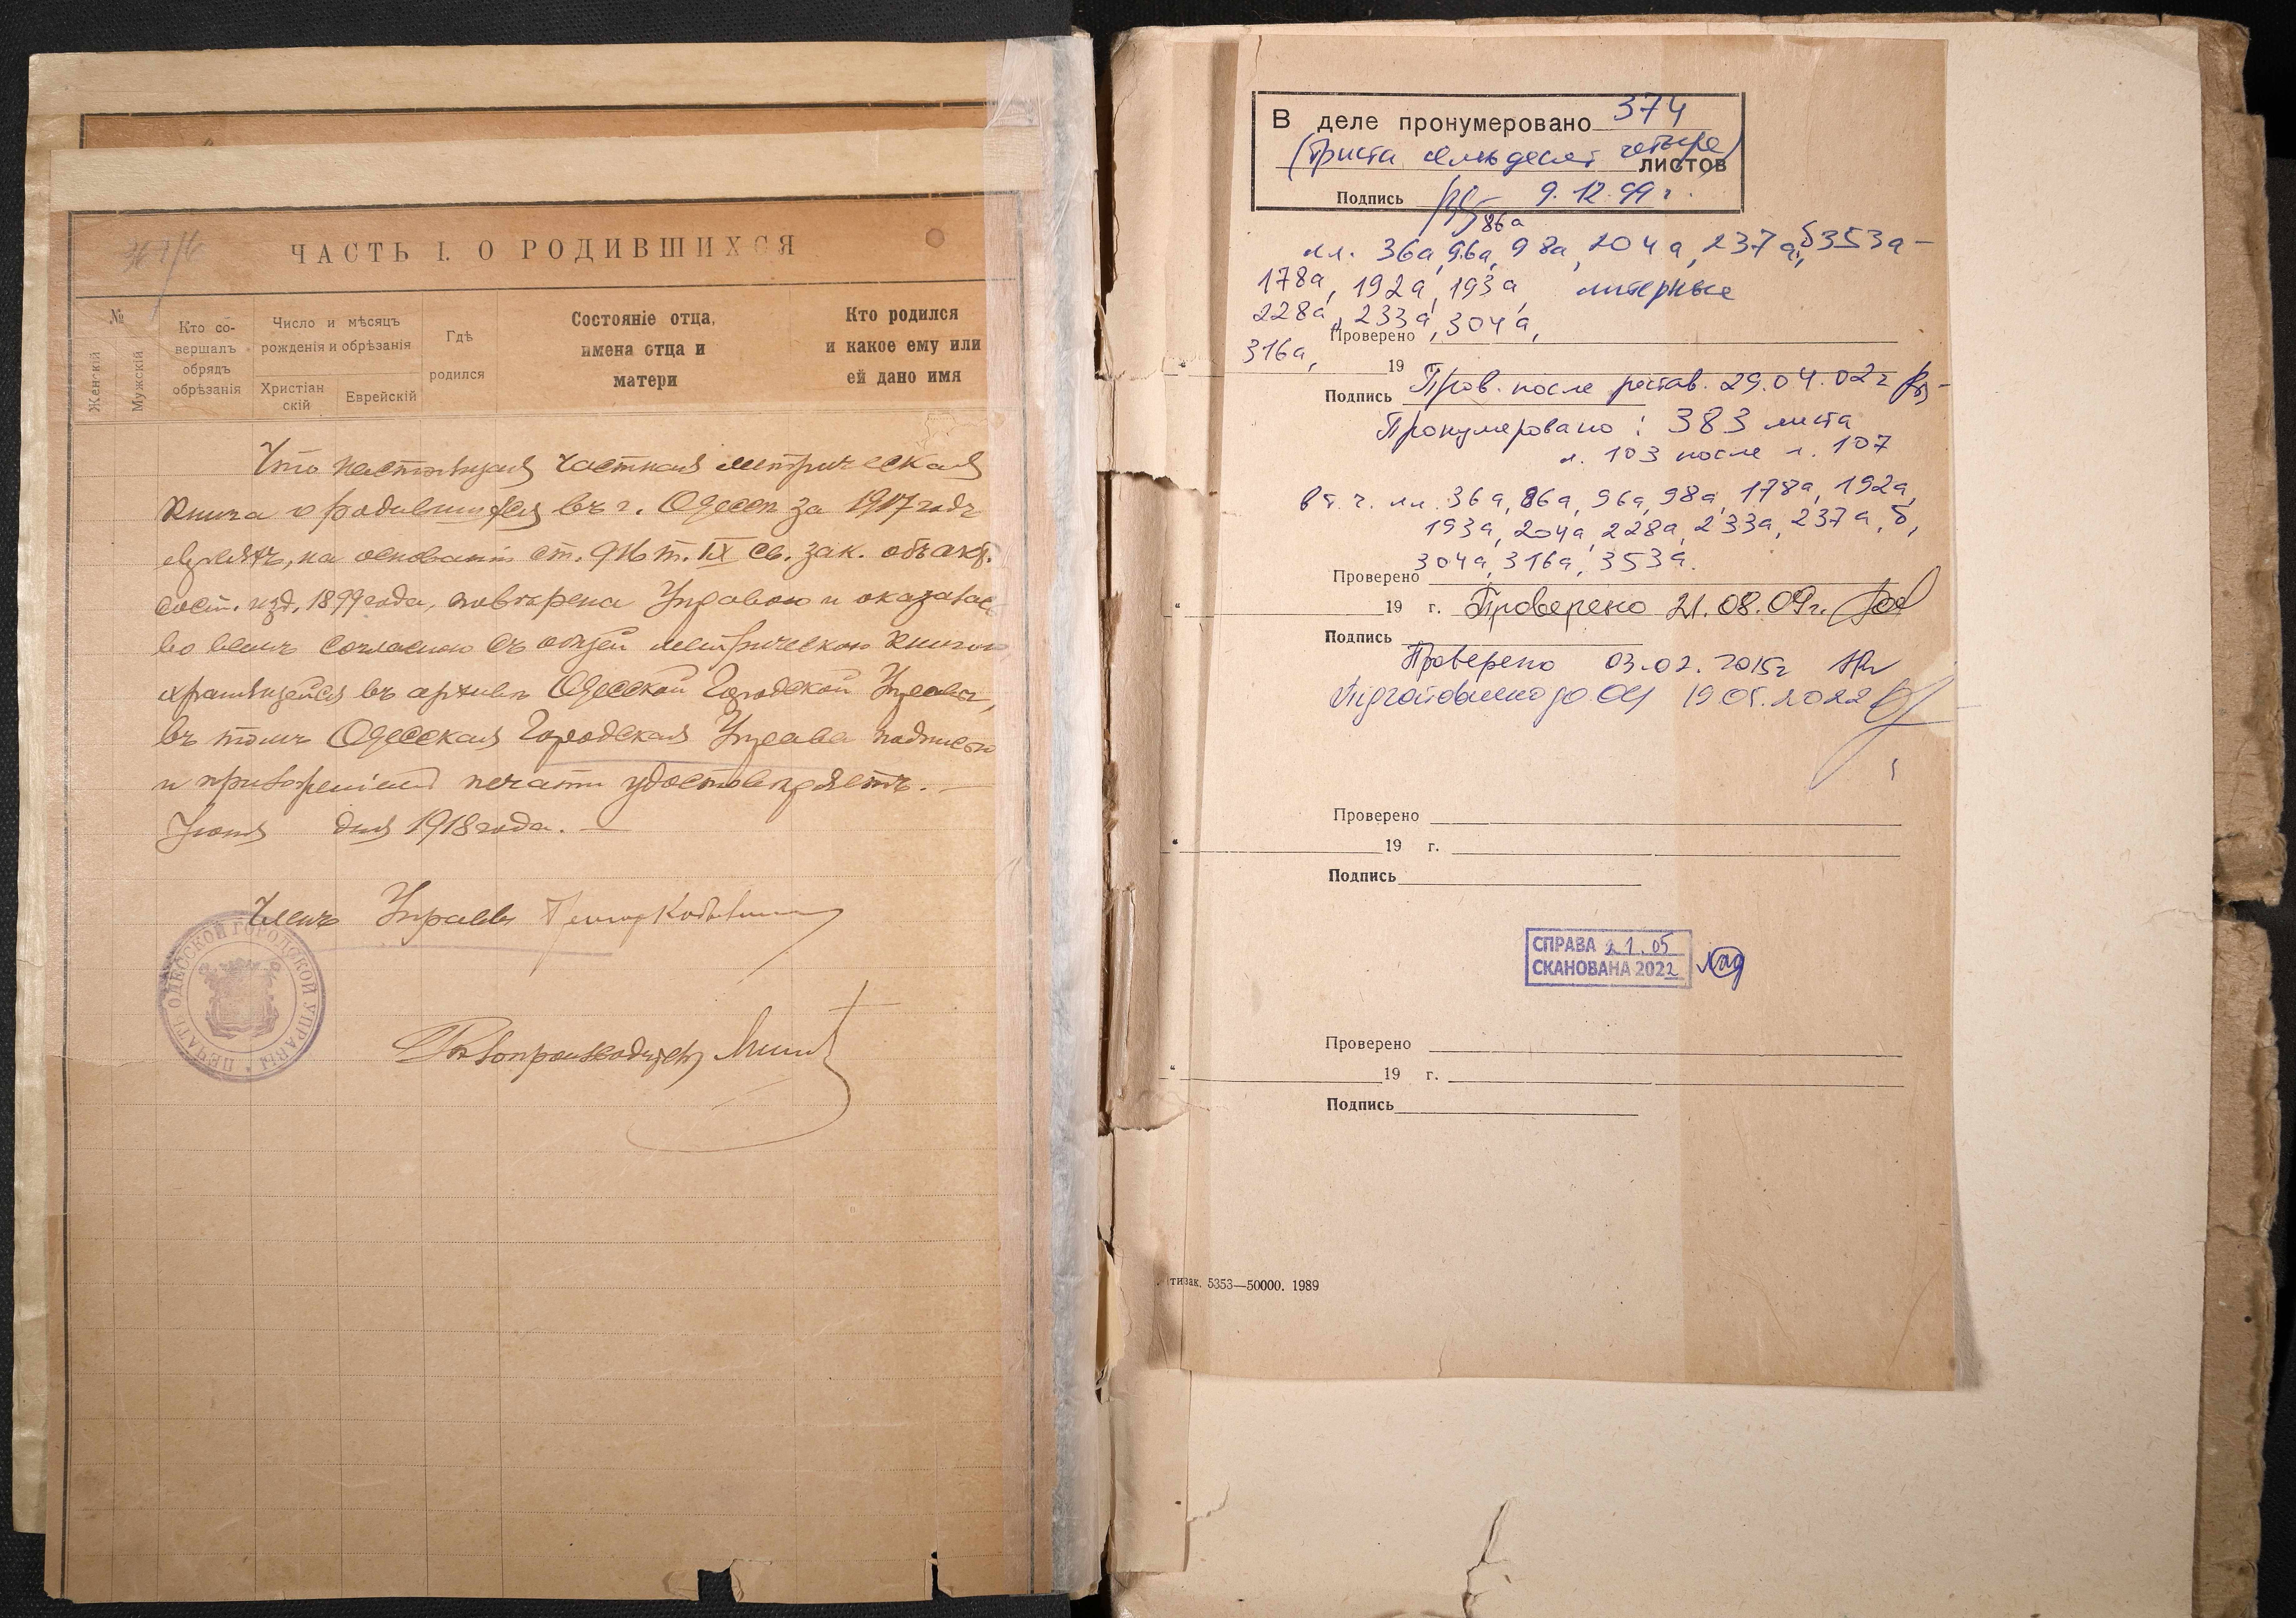 ЧАСТЬ I. О РОДИВШИХСЯ
№
Женскій
Мужскій
Кто со-
вершалъ
обрядъ
обрѣзанія
Число и мѣсяцъ
рожденія и обрѣзанія
Христіан
скій
Еврейскій
Гдѣ
родился
Состояніе отца,
имена отца и
матери
Кто родился
и какое ему или
ей дано имя
Что настоящая частная метрическая
книга о родившихся въ г. Одессѣ за 1917 годъ
евреяхъ, на основаніи ст. 916 т. IX св. зак. объ акт.
сост. изд. 1899 года, повѣрена Управою и оказалась
во всемъ согласною съ общей метрическою книгою,
хранящейся въ архивѣ Одесской Городской Управы,
въ томъ Одесская Городская Управа подписью
и приложеніемъ печати удостовѣряетъ. —
Іюня дня 1918 года. —
Членъ Управы
ПЕЧАТЬ ОДЕССКОЙ ГОРОДСКОЙ УПРАВЫ
Дѣлопроизводитель
В деле пронумеровано 374
(триста семьдесят четыре)
листов
Подпись 9.12.99 г.
86а
лл. 36а, 96а, 98а, 204а, 237а,б 353а —
178а, 192а, 193а, литерные
228а, 233а, 304а,
Проверено
316а,
19
Пров. после рестав. 29.04.02 г
Подпись
Пронумеровано: 383 листа
л. 103 после л. 107
в т. ч. лл. 36а, 86а, 96а, 98а, 178а, 192а,
193а, 204а, 228а, 233а, 237а, б,
304а, 316а, 353а.
Проверено
19 г. Проверено 21.08.09г.
Подпись
Проверено 03.02.2015г
Підготовлено до ОЦ 19.05.2022
Проверено
19 г.
Подпись
СПРАВА 21.05
СКАНОВАНА 2022
Проверено
19 г.
Подпись
зак. 5353—50000. 1989